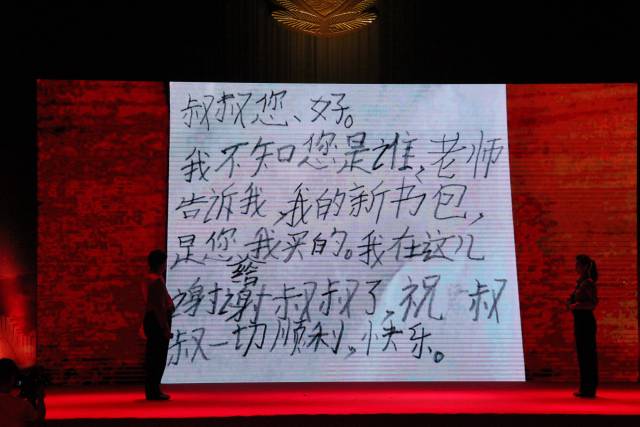 叔叔您、好。
我不知您是谁,老师
告诉我,我的新书包,
是您给我买的。我在这儿
谢谢叔叔了,祝叔
叔一切顺利,快乐。